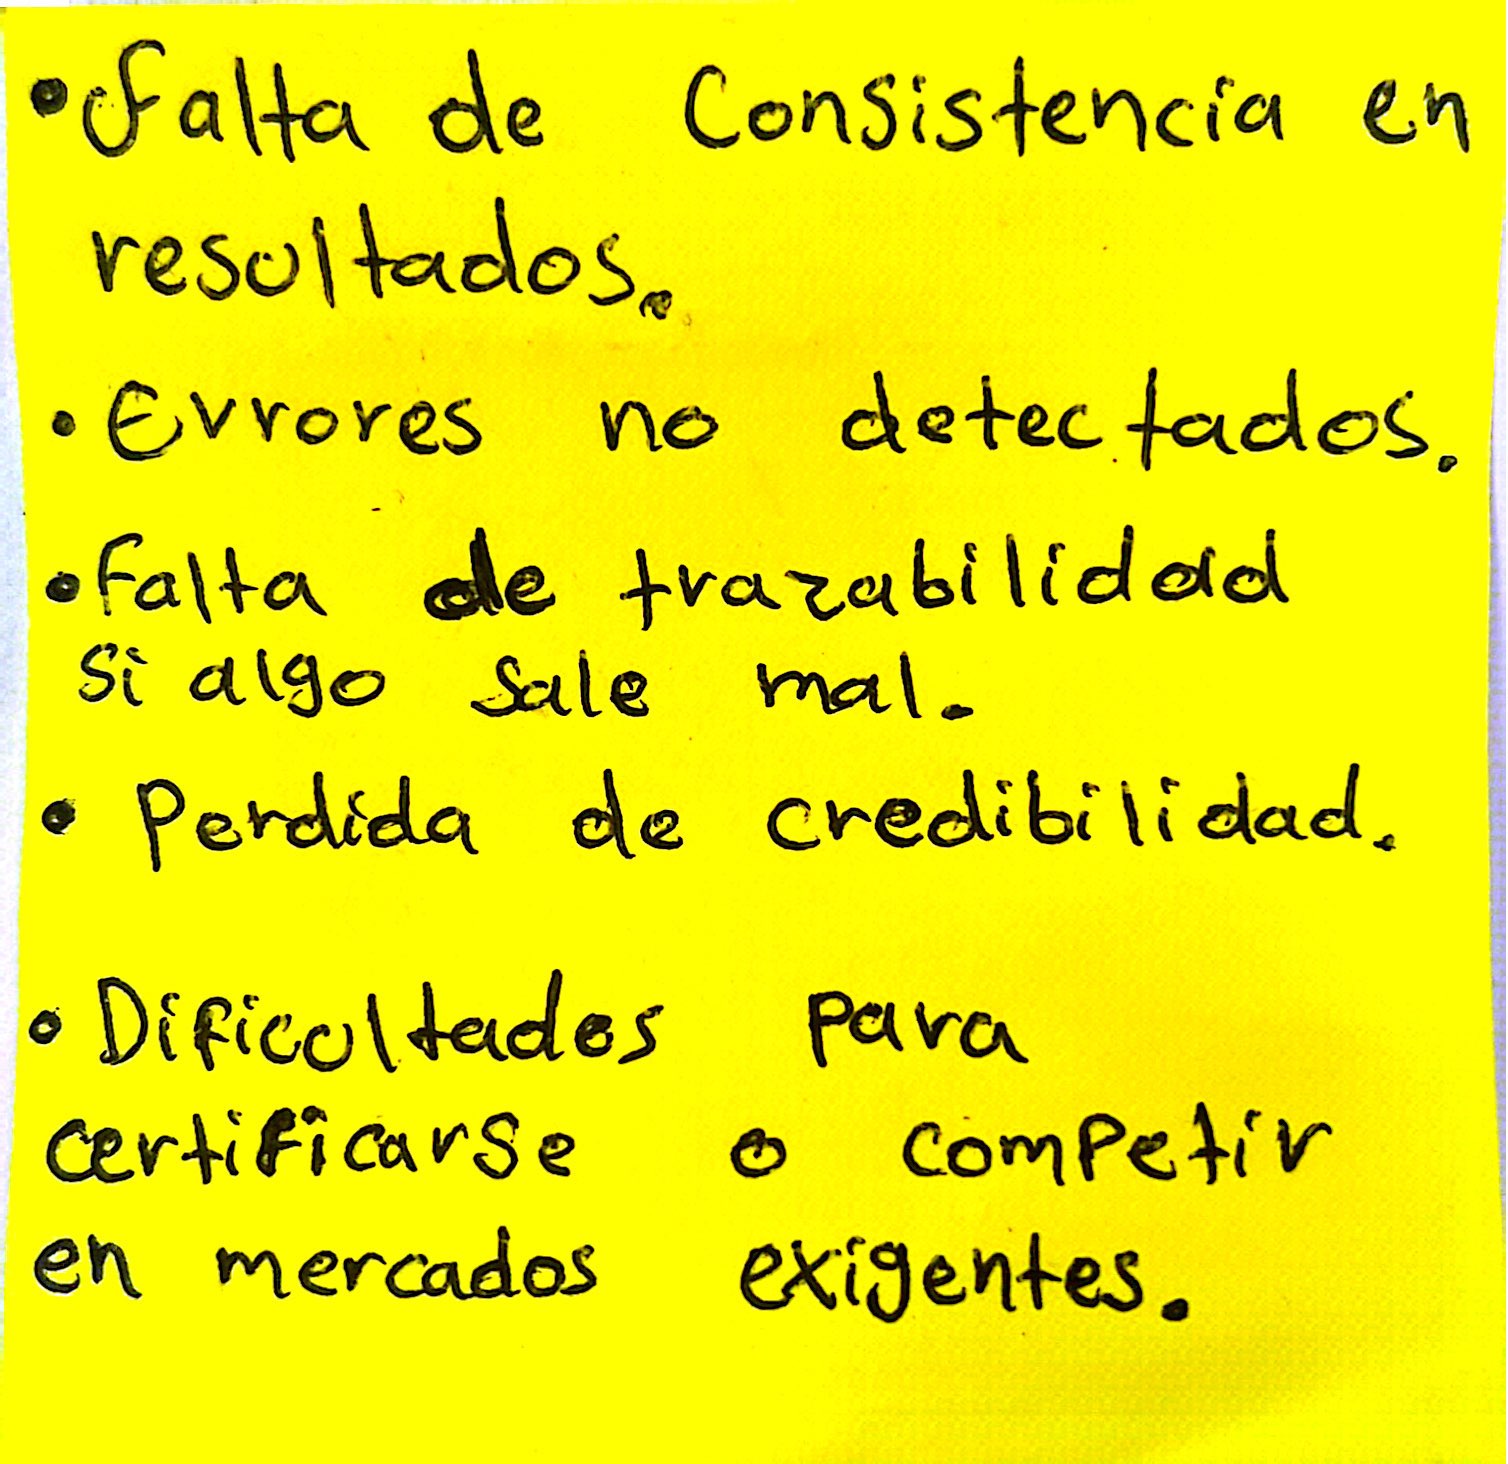 • Falta de Consistencia en
resultados.
• Errores no detectados.
• Falta de trazabilidad
si algo sale mal.
• Perdida de credibilidad.
• Dificultades para
certificarse o competir
en mercados exigentes.